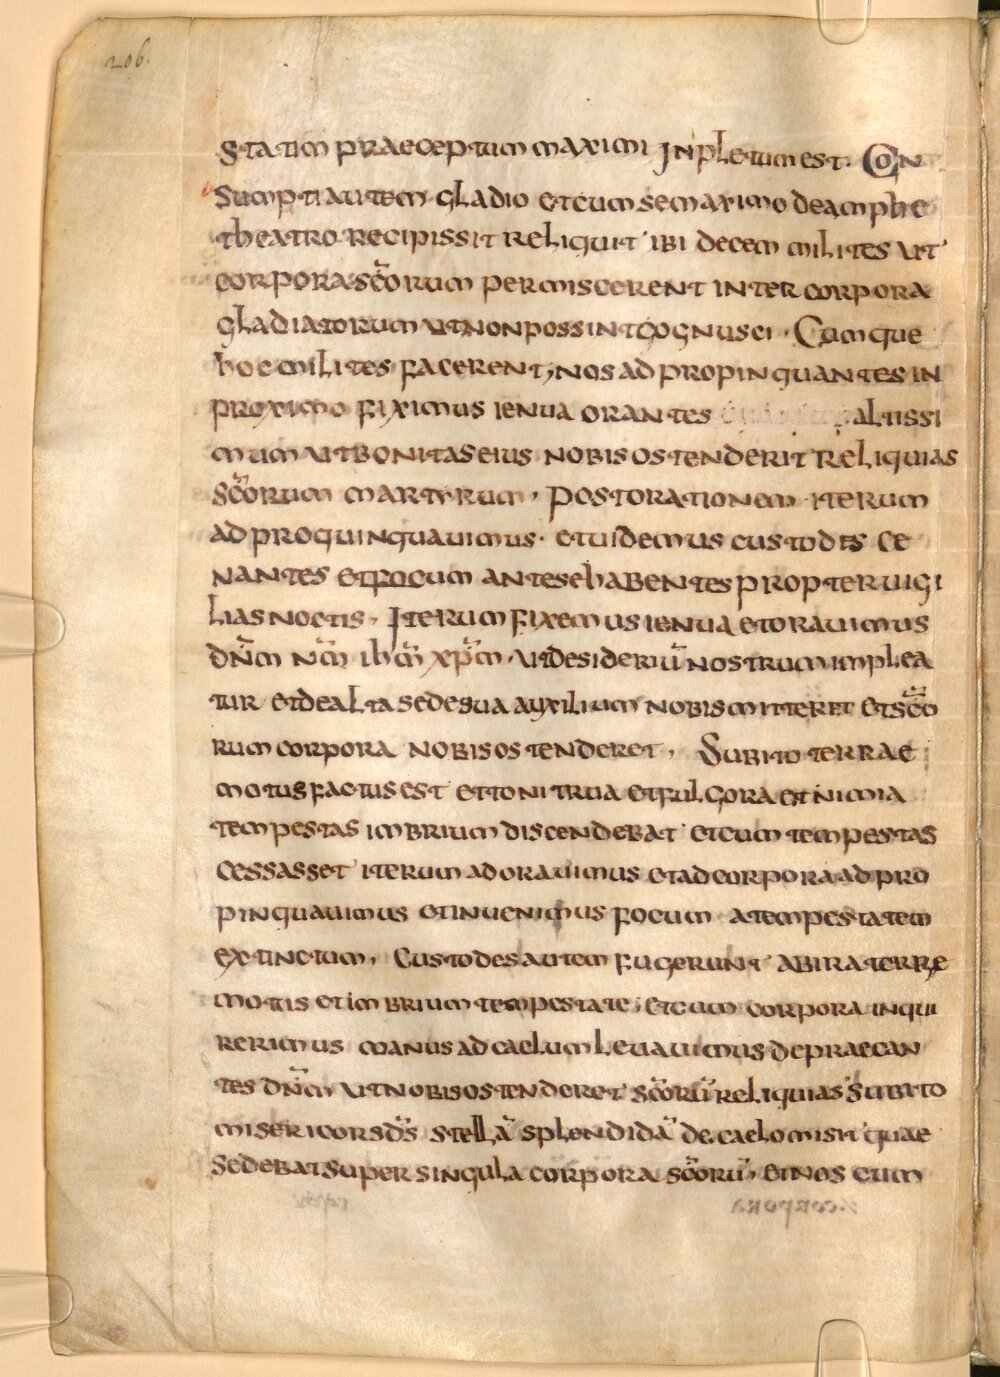 206.
statim praeceptum maximi inpletum est. Con
sumpti autem gladio et cum se maximo de amphe
theatro recipissit reliquit ibi decem milites ut
corpora sc̄orum permiscerent inter corpora
gladiatorum ut non possint cognusci. Cumque
hoc milites facerent, nos adpropinquantes in
proximo fiximus ienua orantes altissi
mum ut bonitas eius nobis ostenderit reliquias
sc̄orum martyrum. Post orationem iterum
adproquinquauimus. et uidemus custodes ce
nantes et focum ante se habentes propter uigi
lias noctis. Iterum fixemus ienua et orauimus
dn̄m nm̄ ihm̄ xpm̄. ut desideriū nostrum implea
tur et de alta sede sua auxilium nobis mitteret et sc̄o
rum corpora nobis ostenderet. Subito terrae
motus factus est et tonitrua et fulgora et nimia
tempestas imbrium discendebat et cum tempestas
cessasset iterum adorauimus et ad corpora adpro
pinquauimus et inuenimus focum a tempestatem
extinctum. Custodes autem fugerunt ab ira terre
motis et imbrium tempestate. et cum corpora inqui
rerimus manus ad caelum leuauimus depraecan
tes dn̄m ut nobis ostenderet sc̄orū reliquias subito
misericors ds̄ stellā splendidā de caelo misit quae
sedebat super singula corpora sc̄orū. et nos cum